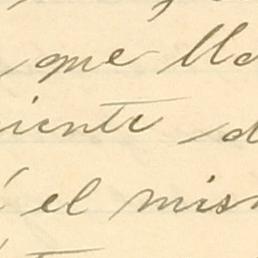 que lla
iente d
el mism